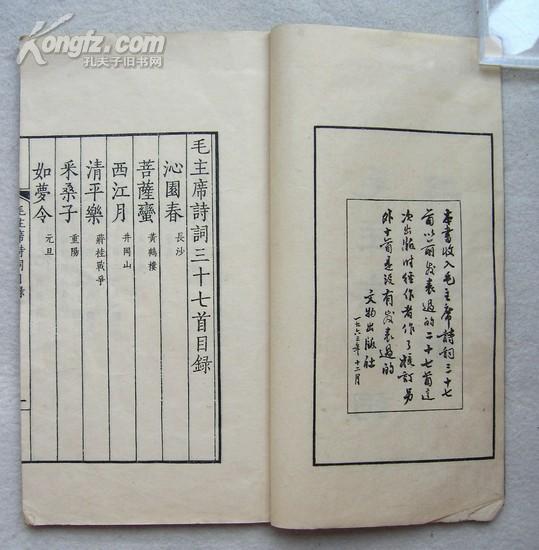 Kongfz.com
孔夫子旧书网
本書收入毛主席詩詞三十七
首以前发表过的二十七首這
次出版时经作者作了校訂另
外十首是没有发表过的
文物出版社
一九六三年十二月
毛主席詩詞三十七首目録
沁園春 長沙
菩薩蠻 黃鶴樓
西江月 井岡山
清平樂 蔣桂戰爭
采桑子 重陽
如夢令 元旦
毛主席詩詞目錄
一